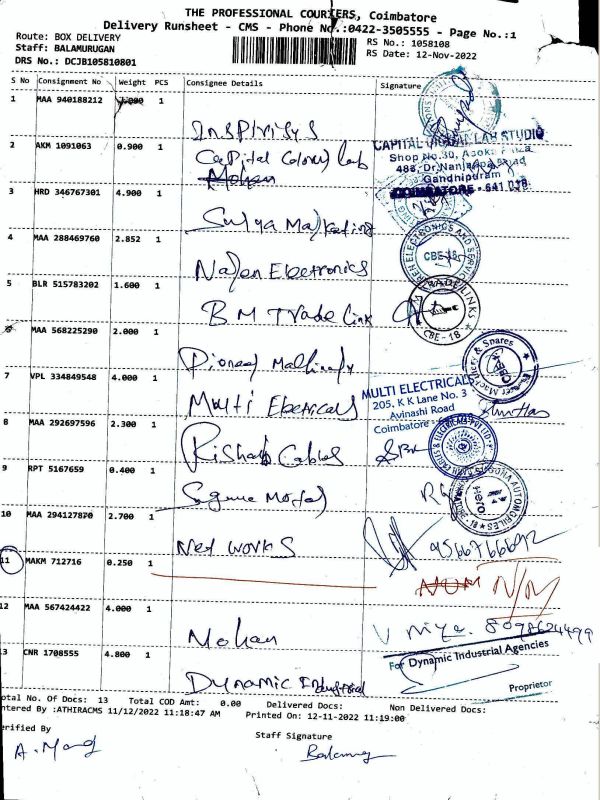 THE PROFESSIONAL COURIERS, Coimbatore
Delivery Runsheet - CMS - Phone No.:0422-3505555 - Page No.:1
Route: BOX DELIVERY
Staff: BALAMURUGAN
DRS No.: DCJB105810801
RS No.: 1058108
RS Date: 12-Nov-2022
S No Consignment No Weight PCS Consignee Details Signature
1 MAA 940188212 1
Inspirisys
2 AKM 1091063 0.900 1
Capital Colour Lab
Mohan
CAPITAL LAB STUDIO
Shop No.30, Asoka Plaza
488, Dr.Nanjappa Road
Gandhipuram
COIMBATORE - 641 018
3 HRD 346767301 4.900 1
Surya Marketing
4 MAA 288469760 2.852 1
Naren Electronics
ELECTRONICS AND SERVICE
CBE-18
5 BLR 515783202 1.600 1
B M Trade link
TRADE LINKS
CBE - 18
6 MAA 568225290 2.000 1
Pioneer Machinery
Pioneer Machinery & Spares
7 VPL 334849548 4.000 1
Multi Electricals
MULTI ELECTRICALS
205, K K Lane No. 3
Avinashi Road
Coimbatore
8 MAA 292697596 2.300 1
Rishab Cables
9 RPT 5167659 0.400 1
Suguna Motors
SUGUNA AUTOMOBILES
10 MAA 294127870 2.700 1
Net works
11 MAKM 712716 0.250 1
N/M
12 MAA 567424422 4.000 1
Mohan
8098624499
13 CNR 1708555 4.800 1
Dynamic Industrial
For Dynamic Industrial Agencies
Proprietor
otal No. Of Docs: 13 Total COD Amt: 0.00 Delivered Docs: Non Delivered Docs:
ntered By :ATHIRACMS 11/12/2022 11:18:47 AM Printed On: 12-11-2022 11:19:00
erified By Staff Signature